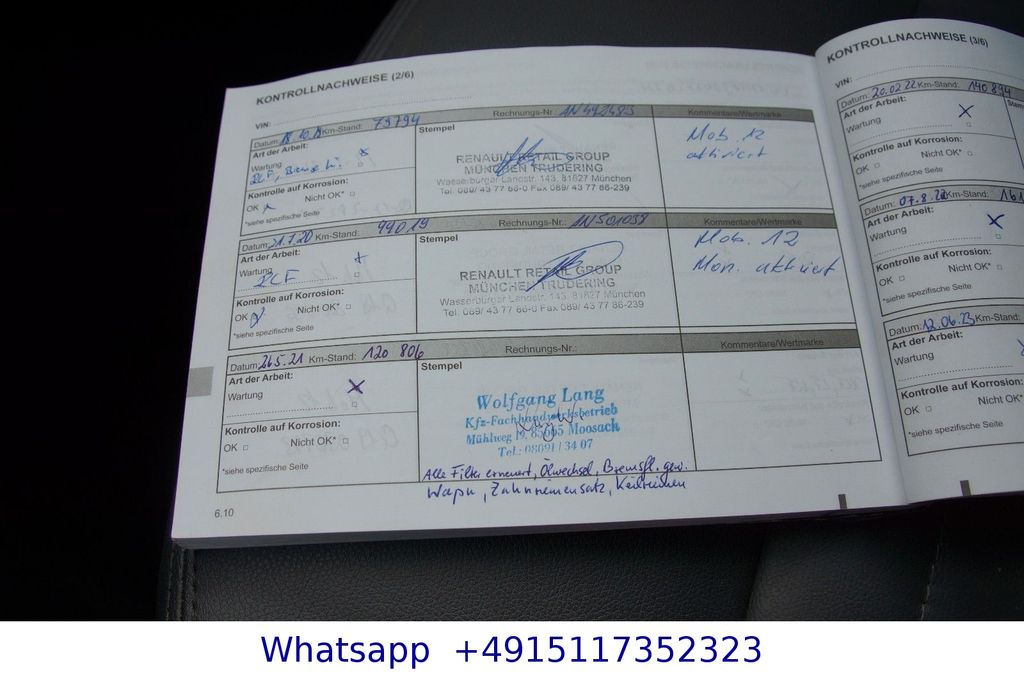 KONTROLLNACHWEISE (2/6)
VIN:
Datum: 18.10.19 Km-Stand: 79794 Rechnungs-Nr.: Kommentare/Wertmarke
Art der Arbeit:
Wartung
Kontrolle auf Korrosion:
OK Nicht OK*
*siehe spezifische Seite
Stempel
RENAULT RETAIL GROUP
MÜNCHEN TRUDERING
Wasserburger Landstr. 143, 81827 München
Tel. 089/ 43 77 66-0 Fax 089/ 43 77 86-239
Mob. 12
aktiviert
Datum: 21.7.20 Km-Stand: 99019 Rechnungs-Nr.: AN501098 Kommentare/Wertmarke
Art der Arbeit:
Wartung
Kontrolle auf Korrosion:
OK Nicht OK*
*siehe spezifische Seite
Stempel
RENAULT RETAIL GROUP
MÜNCHEN TRUDERING
Wasserburger Landstr. 143, 81827 München
Tel. 089/ 43 77 66-0 Fax 089/ 43 77 86-239
Mob. 12
Mon. aktiviert
Datum: 26.5.21 Km-Stand: 120 806 Rechnungs-Nr.: Kommentare/Wertmarke
Art der Arbeit:
Wartung
Kontrolle auf Korrosion:
OK Nicht OK*
*siehe spezifische Seite
Stempel
Wolfgang Lang
Kfz-Fachhandwerksbetrieb
Mühlweg 19, 85665 Moosach
Tel.: 08091 / 34 07
Alle Filter erneuert, Ölwechsel, Bremsfl. gew.
Wapu, Zahnriemensatz, Keilriemen
6.10
KONTROLLNACHWEISE (3/6)
VIN:
Datum: 20.02.22 Km-Stand: 140 894
Art der Arbeit:
Wartung
Kontrolle auf Korrosion:
OK Nicht OK*
*siehe spezifische Seite
Datum: 07.8.22 Km-Stand: 161
Art der Arbeit:
Wartung
Kontrolle auf Korrosion:
OK Nicht OK*
*siehe spezifische Seite
Datum: 12.06.23 Km-Stand:
Art der Arbeit:
Wartung
Kontrolle auf Korrosion:
OK Nicht OK*
*siehe spezifische Seite
Whatsapp +4915117352323